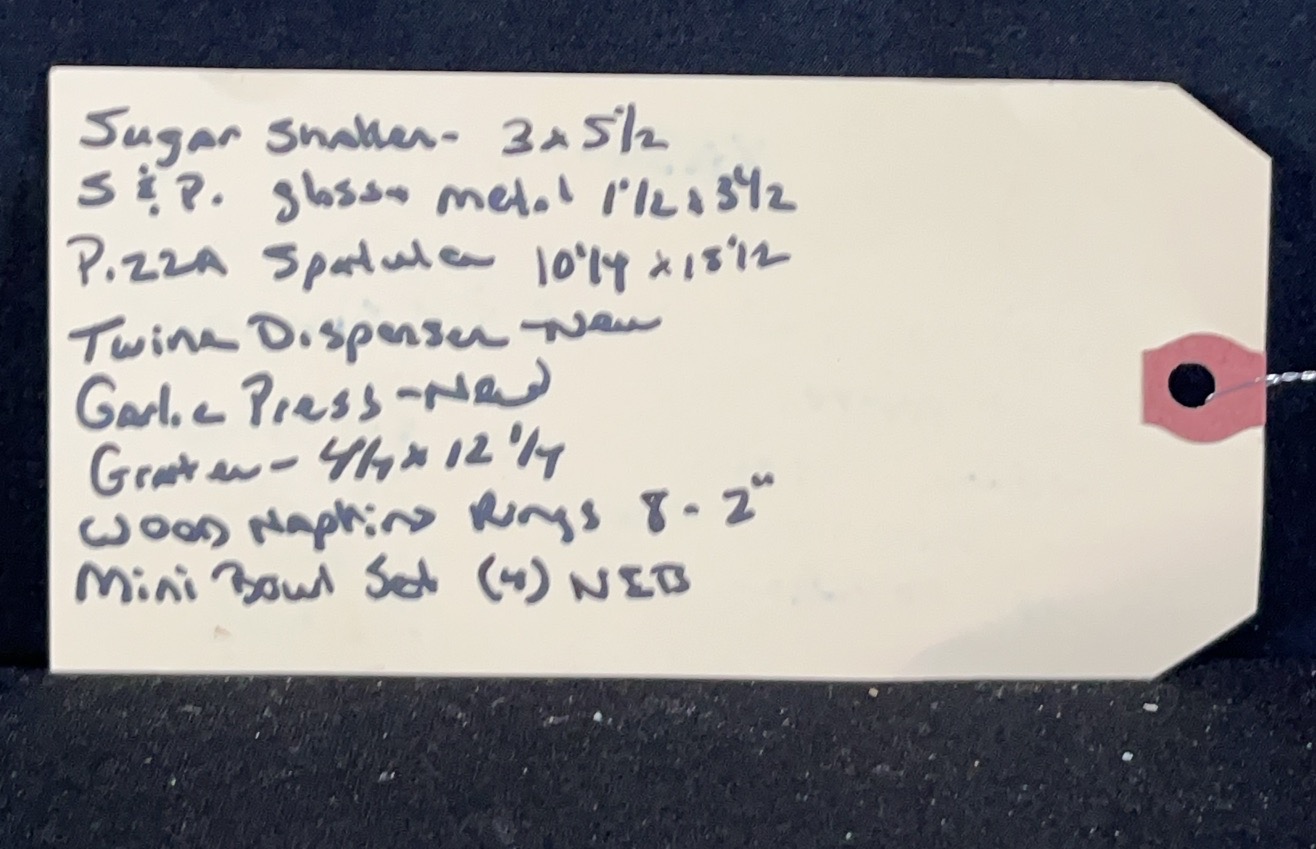 Sugar Shaker - 3 x 5 1/2
S & P. glass + metal 1 1/2 x 3 1/2
Pizza Spatula 10 1/4 x 18 1/2
Twine Dispenser - New
Garlic Press - New
Grater - 4 1/4 x 12 1/4
Wood Napkin Rings 8 - 2"
Mini Bowl Set (4) NIB